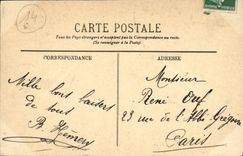 14
CARTE POSTALE
Tous les Pays étrangers n'acceptent pas la Correspondance au recto.
(Se renseigner à la Poste)
CORRESPONDANCE
ADRESSE
Monsieur
Mille bons baisers
René
de tous
23 rue de l'Abbé Grégoire
Paris